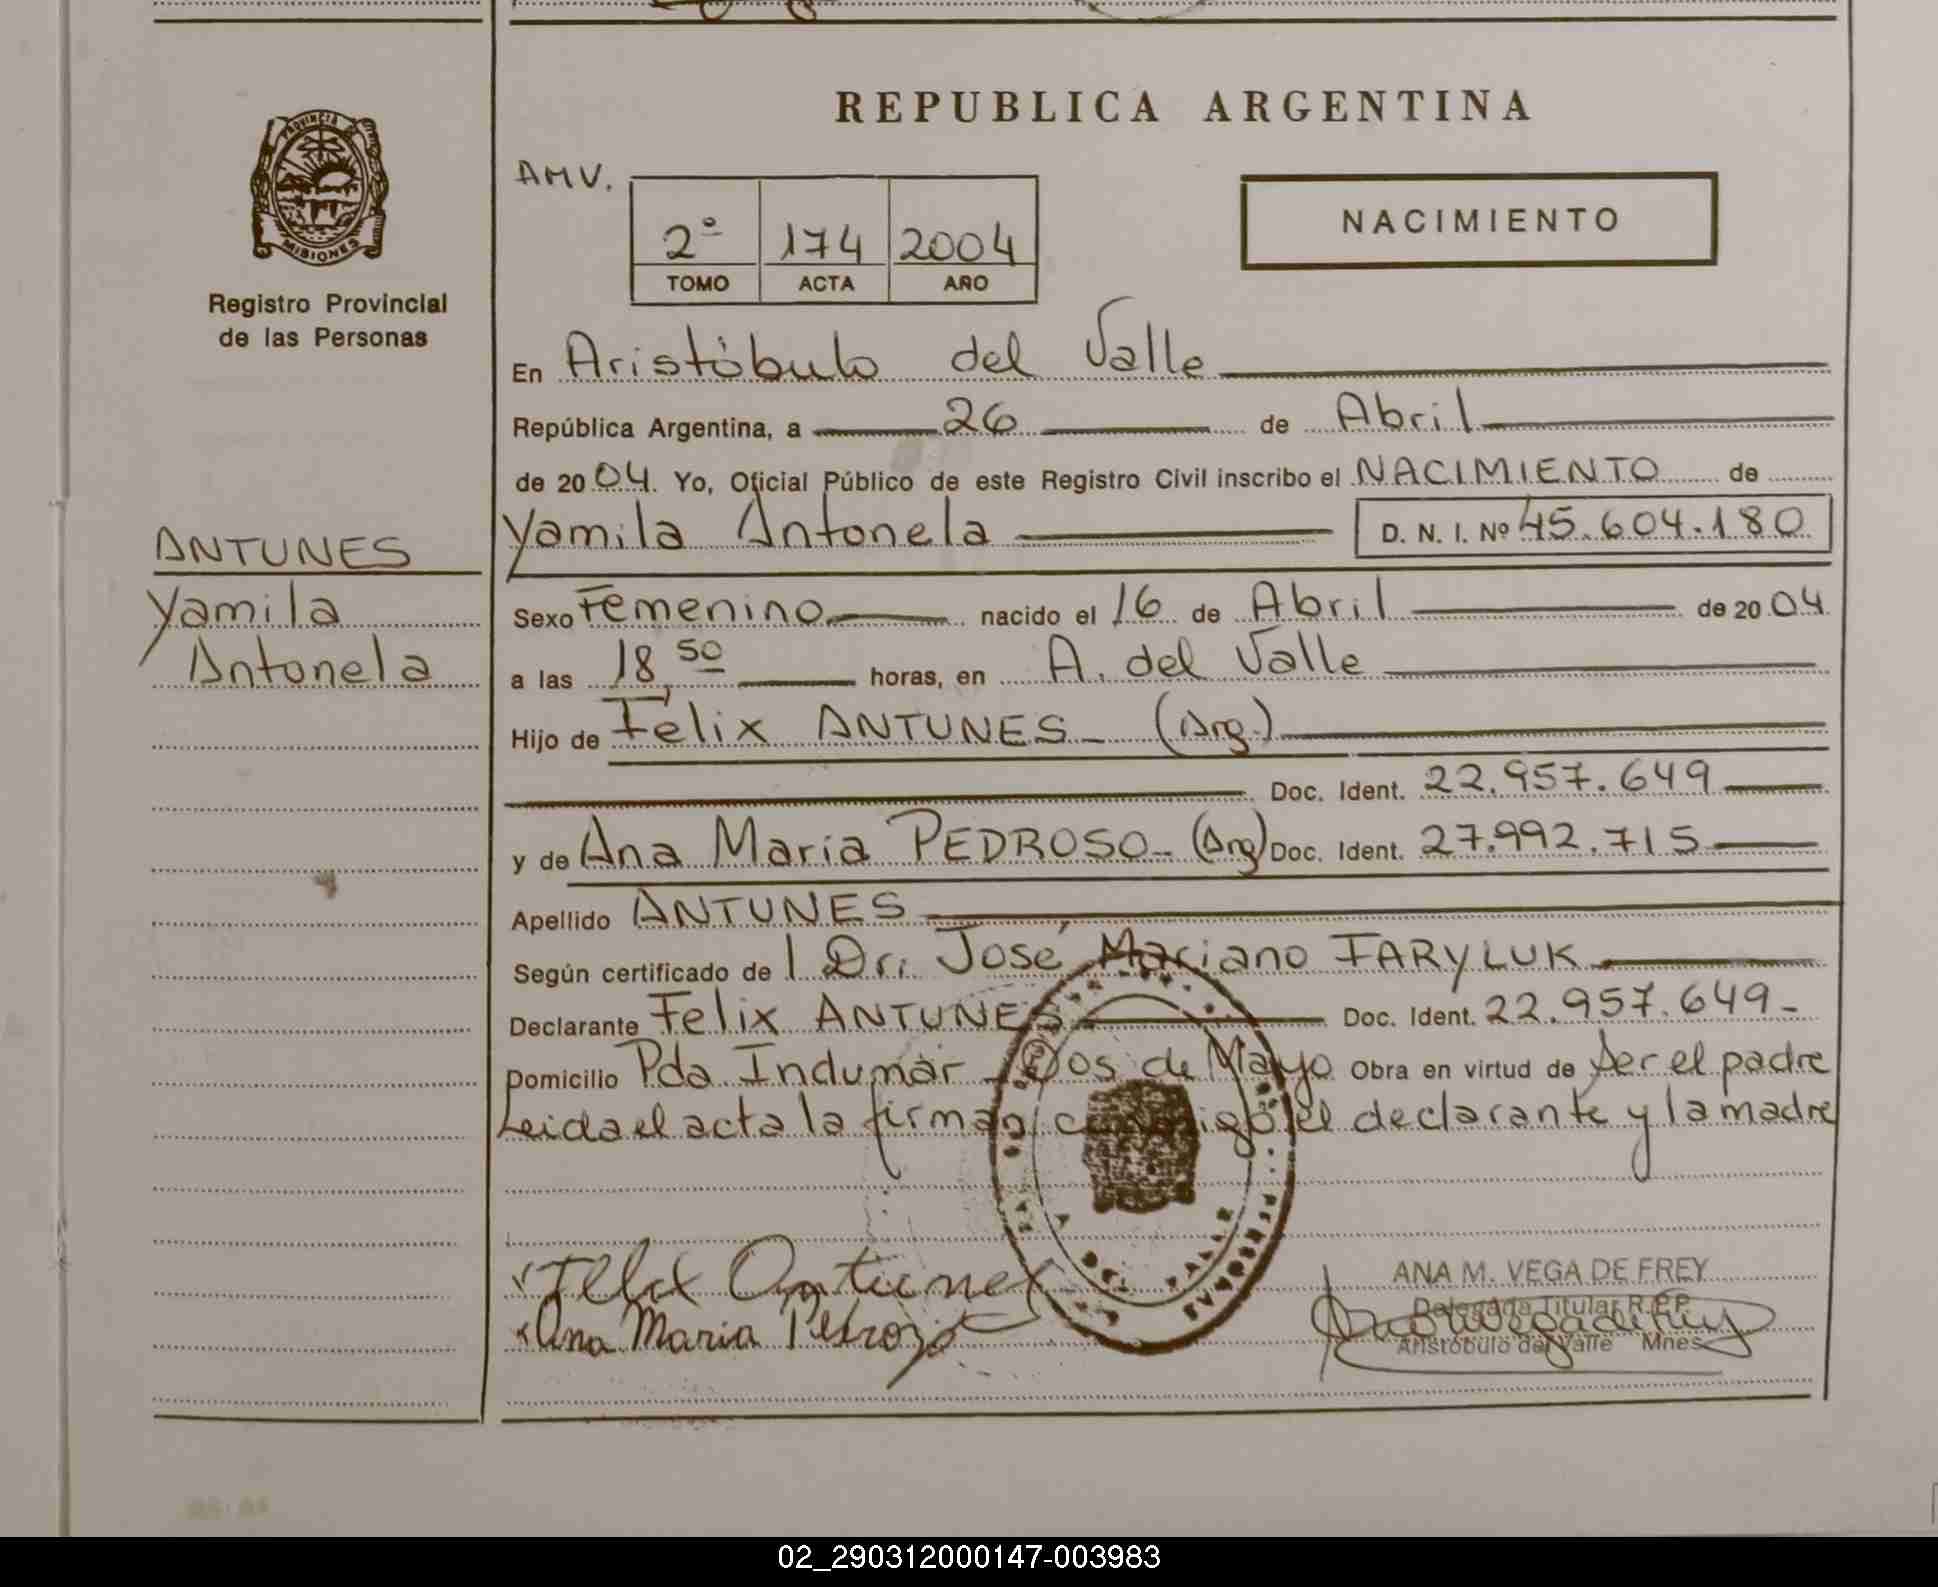 REPUBLICA ARGENTINA
PROVINCIA DE
MISIONES
Registro Provincial
de las Personas
AMV.
2º 174 2004
TOMO ACTA AÑO
NACIMIENTO
En Aristóbulo del Valle
República Argentina, a 26 de Abril
de 20 04. Yo, Oficial Público de este Registro Civil inscribo el NACIMIENTO de
Yamila Antonela D. N. I. Nº 45.604.180
ANTUNES
Yamila
Antonela
Sexo Femenino nacido el 16 de Abril de 20 04
a las 18,50 horas, en A. del Valle
Hijo de Félix ANTUNES (Arg.)
Doc. Ident. 22.957.649
y de Ana Maria PEDROSO (Arg) Doc. Ident. 27.992.715
Apellido ANTUNES
Según certificado de l Dr. José Mariano IARYLUK
Declarante Felix ANTUNES Doc. Ident. 22.957.649
Domicilio Pda Indumar Dos de Mayo Obra en virtud de ser el padre
Leida el acta la firman conmigo el declarante y la madre
DEL VALLE
Felix Antunes
Ana Maria Pedrozo
ANA M. VEGA DE FREY
Delegada Titular R.P.P.
Aristóbulo del Valle Mnes
02_290312000147-003983